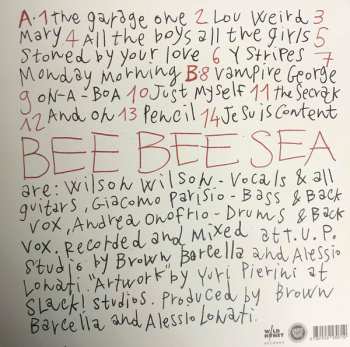 A.1 the garage one 2 Lou Weird 3
Mary 4 All the boys all the girls 5
Stoned by your love 6 Y Stripes 7
Monday Morning B:8 vampire George
9 ON-A-BOA 10 Just Myself 11 the Secrack
12 And oh 13 Pencil 14 Je suis Content
BEE BEE SEA
are: Wilson Wilson - Vocals & all
guitars, Giacomo Parisio - Bass & Back
vox, Andrea Onofrio - Drums & Back
vox. Recorded and Mixed at T.U.P.
Studio by Brown Barcella and Alessio
Lonati. "Artwork" by Yuri Pierini at
Slack! studios. Produced by Brown
Barcella and Alessio Lonati.
WILD HONEY
RECORDS